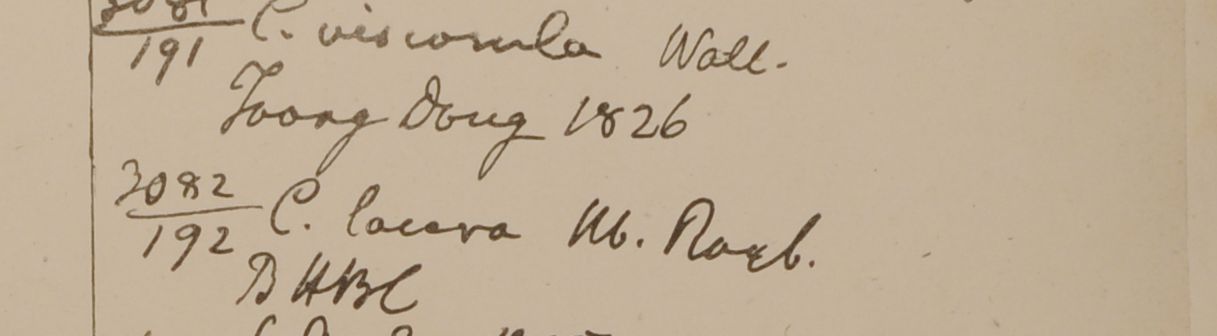 3081
191 C. viscosula Wall.
Toong Doug 1826
3082
192 C. lacera Hb. Roxb.
B HBC